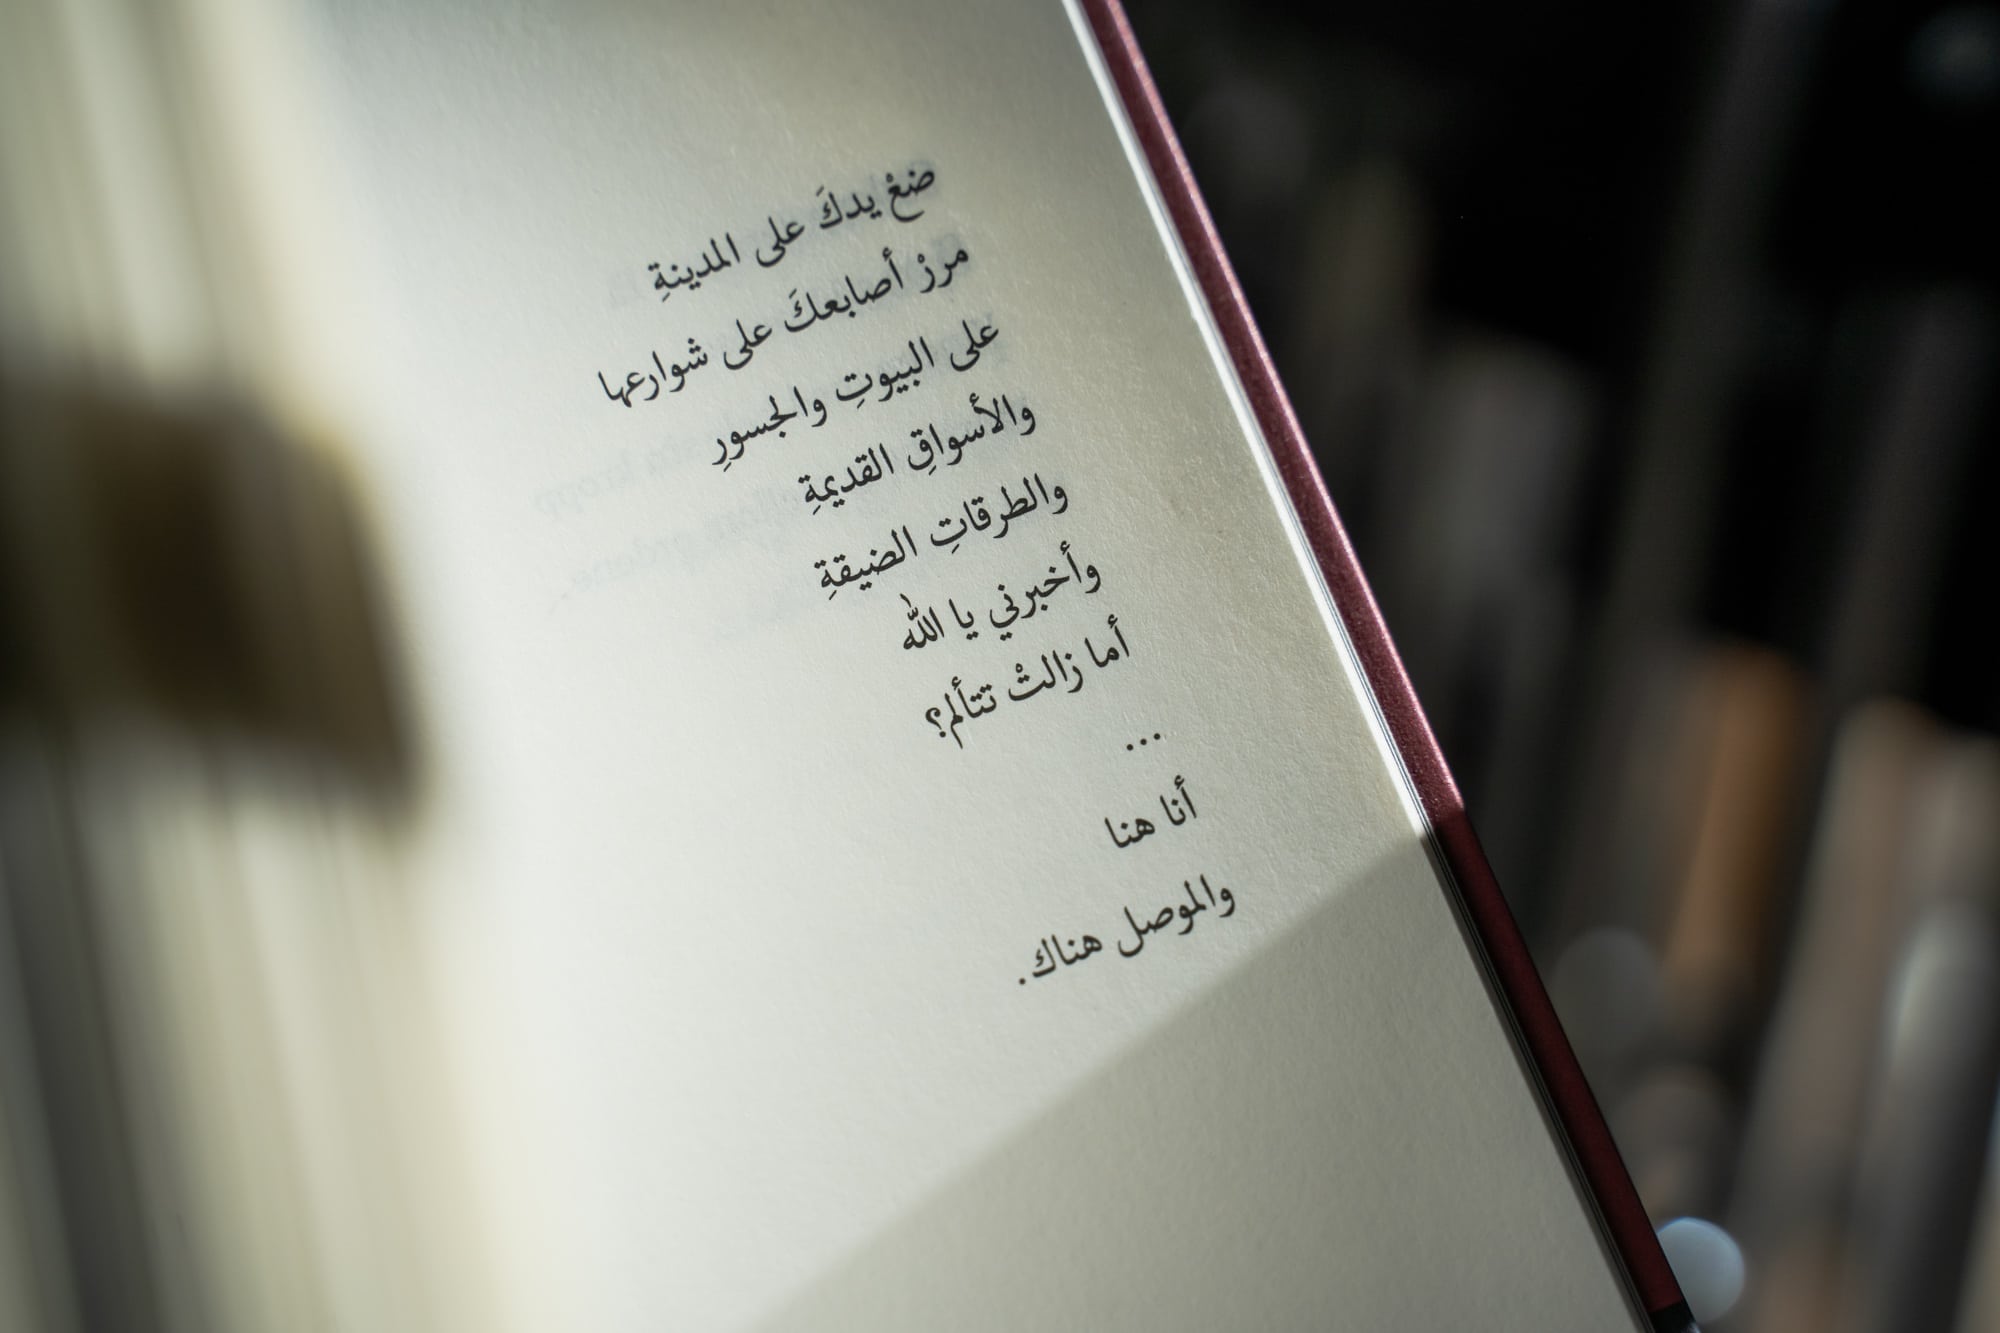 ضعْ يدكَ على المدينةِ
مررْ أصابعكَ على شوارعها
على البيوتِ والجسورِ
والأسواقِ القديمةِ
والطرقاتِ الضيقةِ
وأخبرني يا الله
أما زالتْ تتألم؟
...
أنا هنا
والموصل هناك.